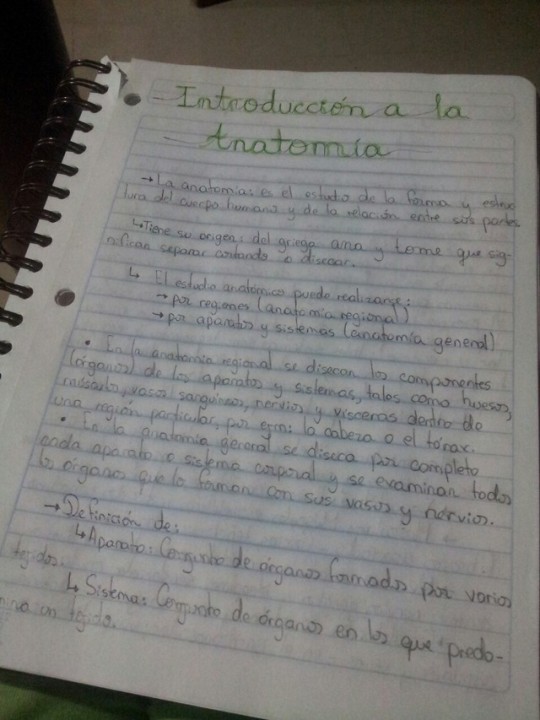 Introducción a la
Anatomía
→ La anatomía: es el estudio de la forma y estruc
tura del cuerpo humano y de la relación entre sus partes
↳ Tiene su origen: del griego ana y tome que sig-
nifican separar cortando o disecar.
↳ El estudio anatómico puede realizarse:
→ por regiones (anatomía regional)
→ por aparatos y sistemas (anatomía general)
• En la anatomía regional se disecan los componentes
(órganos) de los aparatos y sistemas, tales como huesos,
músculo, vasos sanguíneos, nervios y vísceras dentro de
una región particular, por ejm: la cabeza o el tórax.
• En la anatomía general se diseca por completo
cada aparato o sistema corporal y se examinan todos
los órganos que lo forman con sus vasos y nervios.
→ Definición de:
↳ Aparato: Conjunto de órganos formados por varios
tejidos.
↳ Sistema: Conjunto de órganos en los que predo-
mina un tejido.